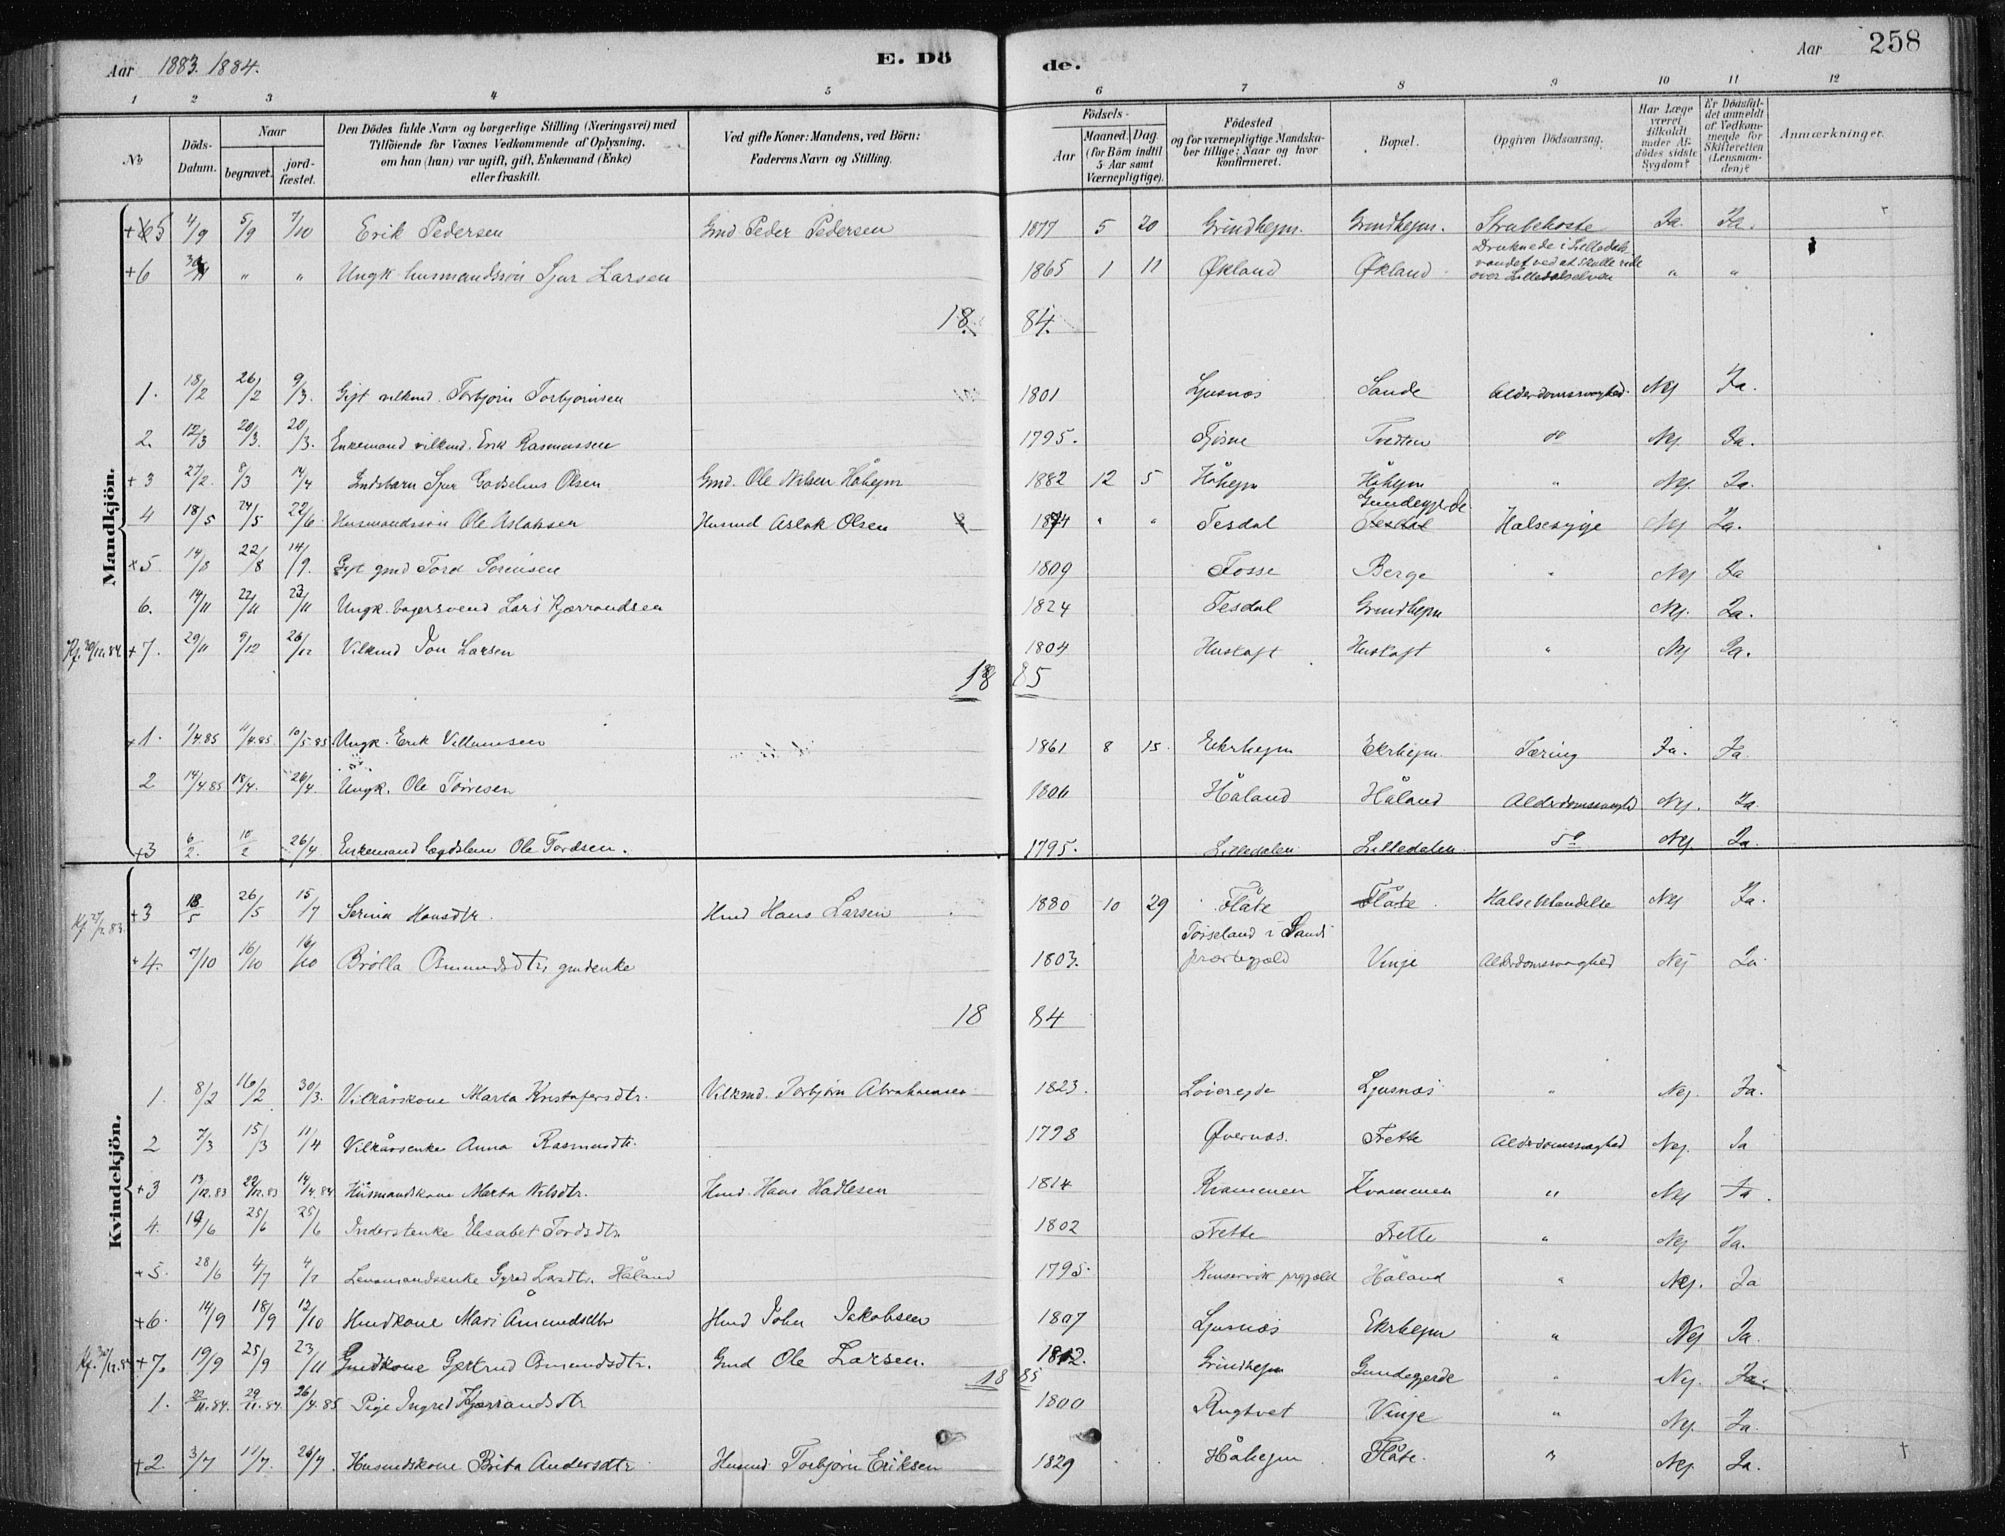 Aar 1883. 1884. E. Dö de. Aar 258
1 2 3 4 5 6 7 8 9 10 11 12
No Döds-Datum. Naar begravet. jordfæstet. Den Dödes fulde Navn og borgerlige Stilling (Næringsvei) med Tilföiende for Voxnes Vedkommende af Oplysning, om han (hun) var ugift, gift, Enkemand (Enke) eller fraskilt. Ved gifte Koner: Mandens, ved Börn: Faderens Navn og Stilling. Födsels- Aar Maaned. Dag. (for Börn indtil 5 Aar samt Værnepligtige). Födested og for værnepligtige Mandskaber tillige; Naar og hvor konfirmeret. Bopæl. Opgiven Dödsaarsag. Har Læge været tilkaldt under Afdödes sidste Sygdom? Er Dödsfaldet anmeldt af Vedkommende for Skifteretten (Lensmanden)? Anmærkninger.
Mandkjön.
+ 5 4/9 5/9 7/10 Erik Pedersen Gmd Peder Pedersen 1877 5 20 Grindhejm. Grindhejm. Strubehoste Ja. Ja.
+6 " " Ungk. husmandssøn Sjur Larsen 1865 1 11 Økland Økland Druknede i Lilledalsvandet ved at skulle ride over Lilledalselven " "
18 84.
1. 18/2 26/2 9/3. Gift vilkmd. Torbjørn Torbjørnsen 1801 Ljusnæs Sande Alderdomssvaghed. Nej Ja.
2. 12/3 20/3. 20/3. Enkemand vilkmd. Erik Rasmussen 1795. Fjøsne Tvedten do Nej. Ja.
+3 27/2. 8/3 14/4 Indsbarn Sjur Godselius Olsen Gmd. Ole Nilsen Håhejm 1882 12 5 Håhejm Håhejm " Nej. Ja.
4 18/5 24/5 22/6. Husmandssøn Ole Aslaksen Husmd Aslak Olsen 1874 " " Tesdal Gundegjerde Tesdal Halsesyge Nej Ja.
+5. 14/8 22/8 14/9. Gift gmd Tord Sørensen 1809 Fosse Berge " Nej Ja
6. 14/11 22/11 23/11 Ungk. bagersvend Lars Kjærrandsen 1824 Tesdal Grindhejm Nej. Ja.
Kf. 30/12.84 +7. 29/11 9/12 26/12 Vilkmd Jon Larsen 1804 Huskaft Huskaft " Nej Ja.
18 85
+1. 1/4.85 11/4.85 10/5.85 Ungk. Erik Villumsen 1861 8 15. Ekrhejm Ekrhejm. Tæring Ja. Ja.
2 14/4.85 18/4. 26/4. Ungk. Ole Tørresen Håland Håland Alderdomssvaghed Nej. Ja.
+3 6/2. 10/2 26/4 Enkemand lægdslem Ole Tordsen. 1795. Lilledalen Lilledalen do Nej. Ja.
Kvindekjön.
+3 18/5 26/5 15/7 Serina Hansdtr. Hmd Hans Larsen 1880 10 29 Flåte Flåte. Halsebetændelse Nej Ja.
+4. 7/10 16/10 16/10 Brølla Omundsdtr, gmdenke 1803. Tørseland i Sands præstegjæld Vinje Alderdomssvaghed Nej Ja
18 84
1. 8/2 16/2 30/3. Vilkårskone Marta Kristofersdtr. Vilkmd. Torbjørn Abrahamsen 1823. Løieregde Ljusnæs " Nej. Ja.
2 7/3 15/3 11/4 Vilkårsenke Anna Rasmusdtr. 1798 Øvernæs. Frette Alderdomssvaghed Nej. Ja
+3 13/12.83 22/12.83 14/4.84 Husmandskone Marta Nilsdtr. Hmd. Hans Hadlesen 1814 Kvammen Kvammen " Nej Ja.
4. 19/6 25/6 25/6 Inderstenke Elisabet Tordsdtr. 1802 Frette Frette " Nej Ja.
+5. 28/6 4/7 4/7 Lensmandsenke Gyrid Larsdtr. Håland 1795. Kinservik prgjæld Håland " Nej. Ja
+6. 14/9 18/9 12/10 Hmdkone Mari Åmundsdtr Hmd John Jakobsen 1807 Ljusnæs Ekrhejm " Nej Ja.
+7. 19/9 25/9 23/11 Gmdkone Gjertrud Omundsdtr. Gmd Ole Larsen. 1812. Grindhejm Gundegjerde " Nej. Ja.
18 85
1. 22/11.84. 29/11.84. 26/4.85 Pige Ingrid Kjærrandsdtr 1800 Rugtvet Vinje " Nej. Ja.
+2. 3/7 11/7. 26/7. Husmdskone Brita Andersdtr Husmd. Torbjørn Eriksen 1829 Håhejm Flåte. " Nej Ja.